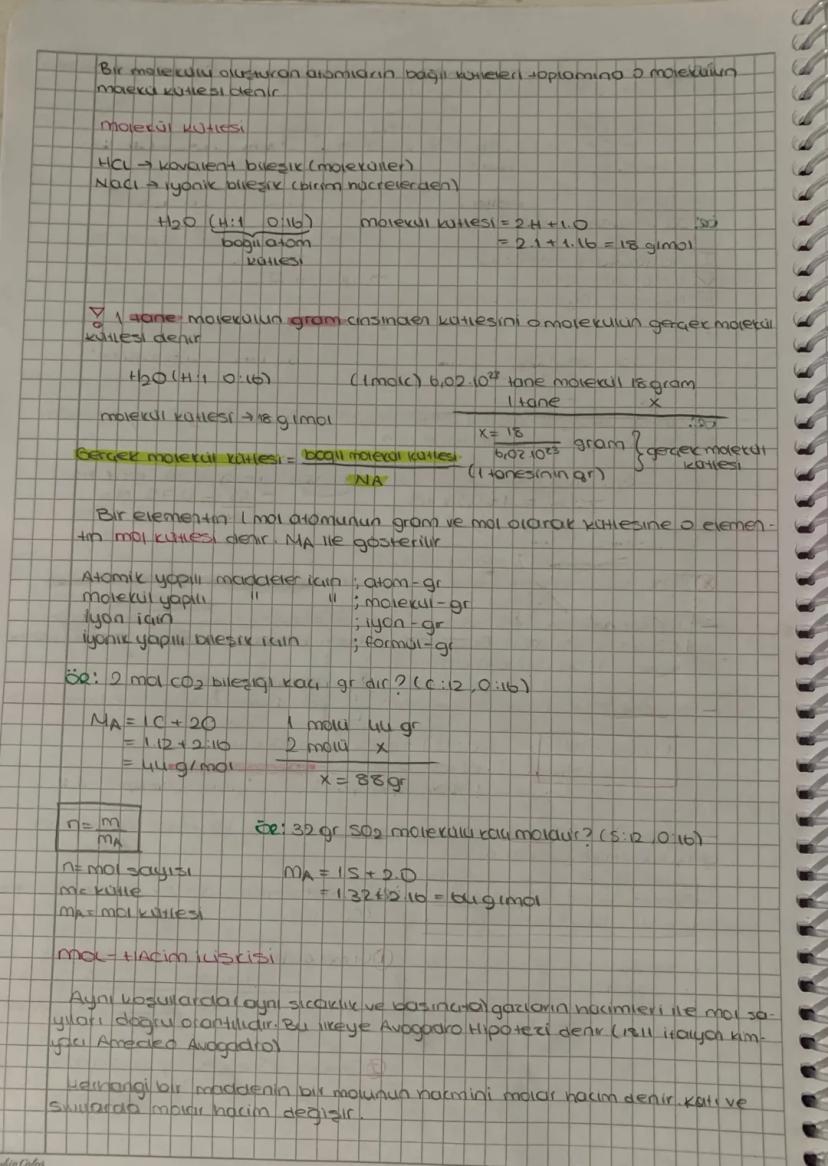 Bir molekülü oluşturan atomların bağıl kütleleri toplamına o molekülün
molekül kütlesi denir.
molekül kütlesi
HCl → kovalent bileşik (moleküller)
NaCl → iyonik bileşik (birim hücrelerden)
H2O (H:1 O:16) molekül kütlesi = 2H+1.O
bağıl atom = 2.1+1.16 = 18 g/mol
kütlesi
1 tane molekülün gram cinsinden kütlesini o molekülün gerçek molekül
kütlesi denir
H2O (H:1 O:16) (1 mol) 6,02.10²³ tane molekül 18 gram
1 tane x
molekül kütlesi → 18 g/mol
x = 18 / 6,02.10²³ gram } gerçek molekül kütlesi
Gerçek molekül kütlesi = bağıl molekül kütlesi / NA (1 tanesinin gr)
Bir elementin 1 mol atomunun gram ve mol olarak kütlesine o elemen-
tin mol kütlesi denir. MA ile gösterilir
Atomik yapılı maddeler için ; atom-gr
molekül yapılı " " ; molekül-gr
iyon için ; iyon-gr
iyonik yapılı bileşik için ; formül-gr
ör: 2 mol CO2 bileşiği kaç gr dır? (C:12, O:16)
MA = 1C + 2O 1 molü 44 gr
= 1.12 + 2.16 2 molü x
= 44 g/mol x = 88 gr
n = m / MA ör: 32 gr SO2 molekülü kaç moldür? (S:12, O:16)
n = mol sayısı MA = 1S + 2.O
m = kütle = 1.32 + 2.16 = 64 g/mol
MA = mol kütlesi
mol - Hacim ilişkisi
Aynı koşullarda (aynı sıcaklık ve basınçta) gazların hacimleri ile mol sa-
yıları doğru orantılıdır. Bu ilkeye Avogadro Hipotezi denir (1811 italyan kim-
yacı Amedeo Avogadro)
Herhangi bir maddenin bir molunun hacmini molar hacim denir. Katı ve
sıvılarda molar hacim değişir.